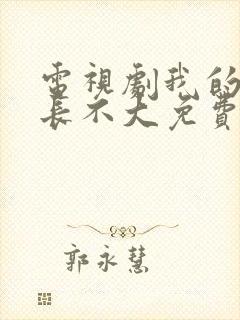 電視劇我的
長不大免費
郭永慧